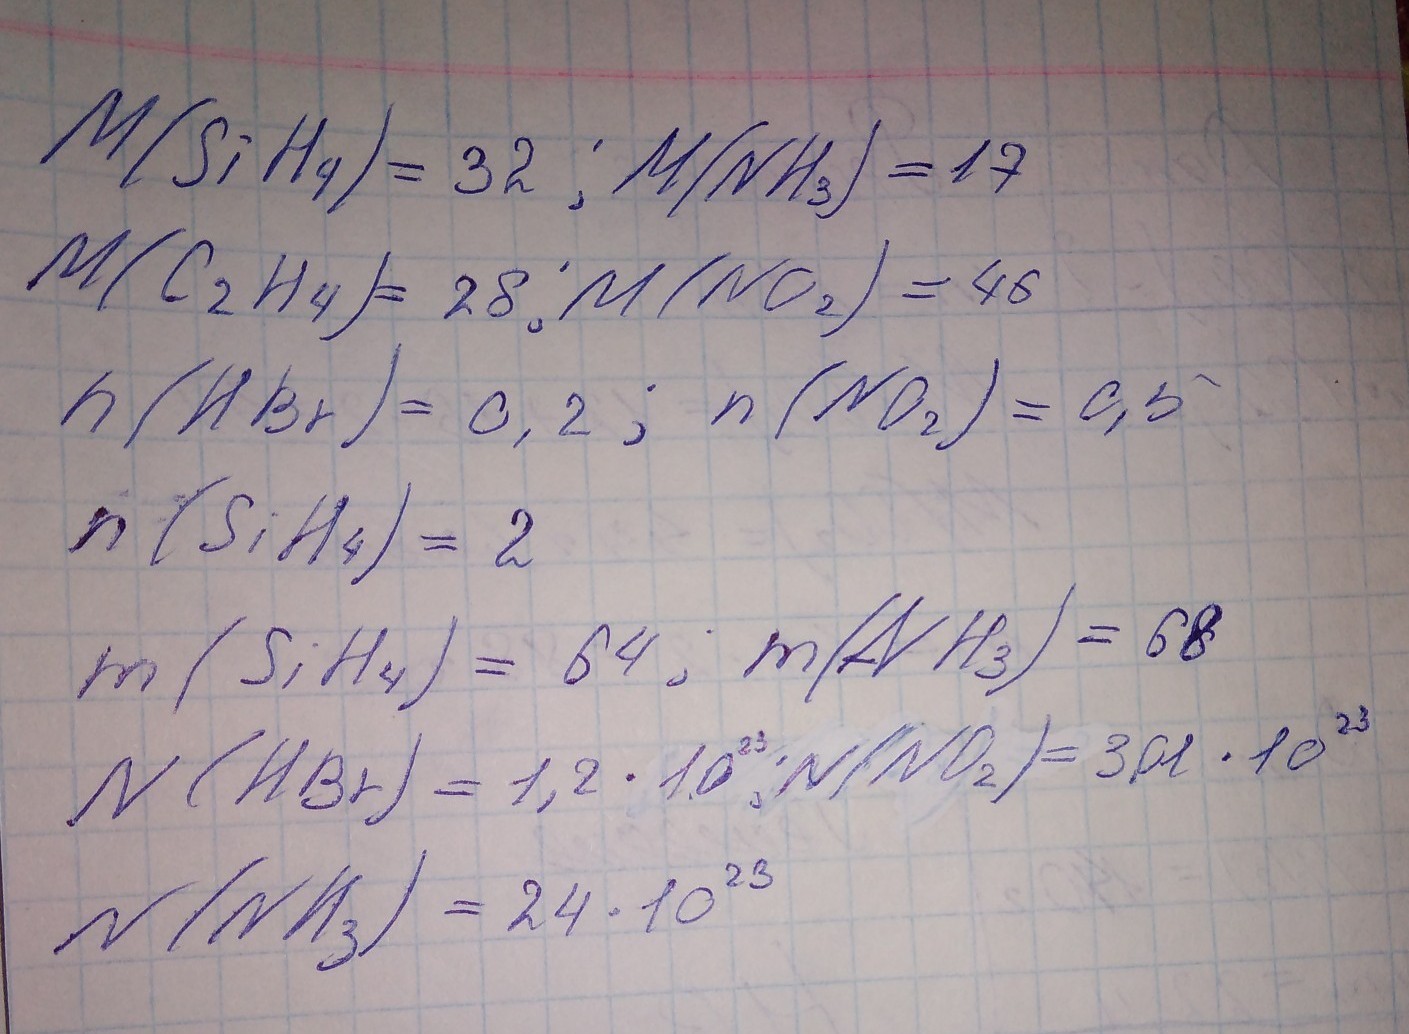 M(SiH₄) = 32 ; M(NH₃) = 17
M(C₂H₄) = 28 ; M(NO₂) = 46
n(HBr) = 0,2 ; n(NO₂) = 0,5
n(SiH₄) = 2
m(SiH₄) = 64 ; m(NH₃) = 68
N(HBr) = 1,2 · 10²³ ; N(NO₂) = 3,01 · 10²³
N(NH₃) = 24 · 10²³